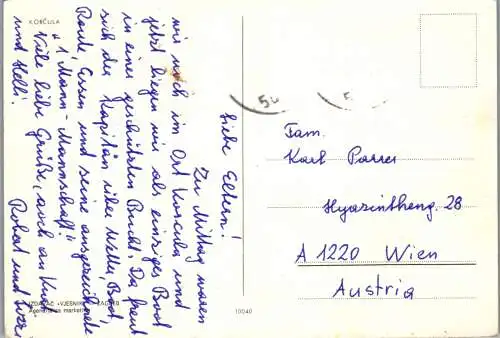 KORČULA
Liebe Eltern!
Zu Mittag waren
wir noch im Ort Kurcula und
jetzt liegen wir als einziges Boot
in einer geschützten Bucht. Da freut
sich der Kapitän über Wetter, Boot,
Route, Essen und seine ausgezeichnete
"1 Mann-Mannschaft"
Viele liebe Grüße, auch an
und Helli!
Robert und
Fam.
Karl Parrer
Hyazintheng. 28
A 1220 Wien
Austria
IZDAVAČ »VJESNIK« ZAGREB
Agencija za marketing
10040